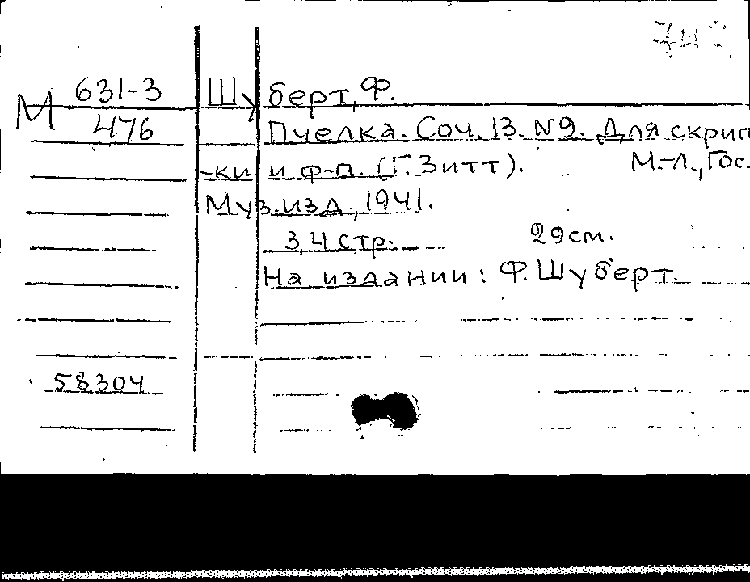 М 631-3
476
Шуберт, Ф.
Пчелка. Соч. 13. №9. Для скрип
-ки и ф-п. (Г. Зитт). М.-Л., Гос.
Муз. изд., 1941.
3,4 стр. 29 см.
На издании: Ф. Шуберт.
58304